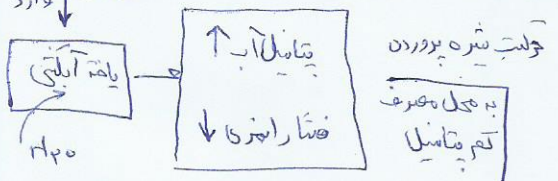 وارد
یاخته آبکشی
H₂O
پتانسیل آب ↑
فشار اسمزی ↓
حرکت شیره پرورده
به محل مصرف
کم پتانسیل